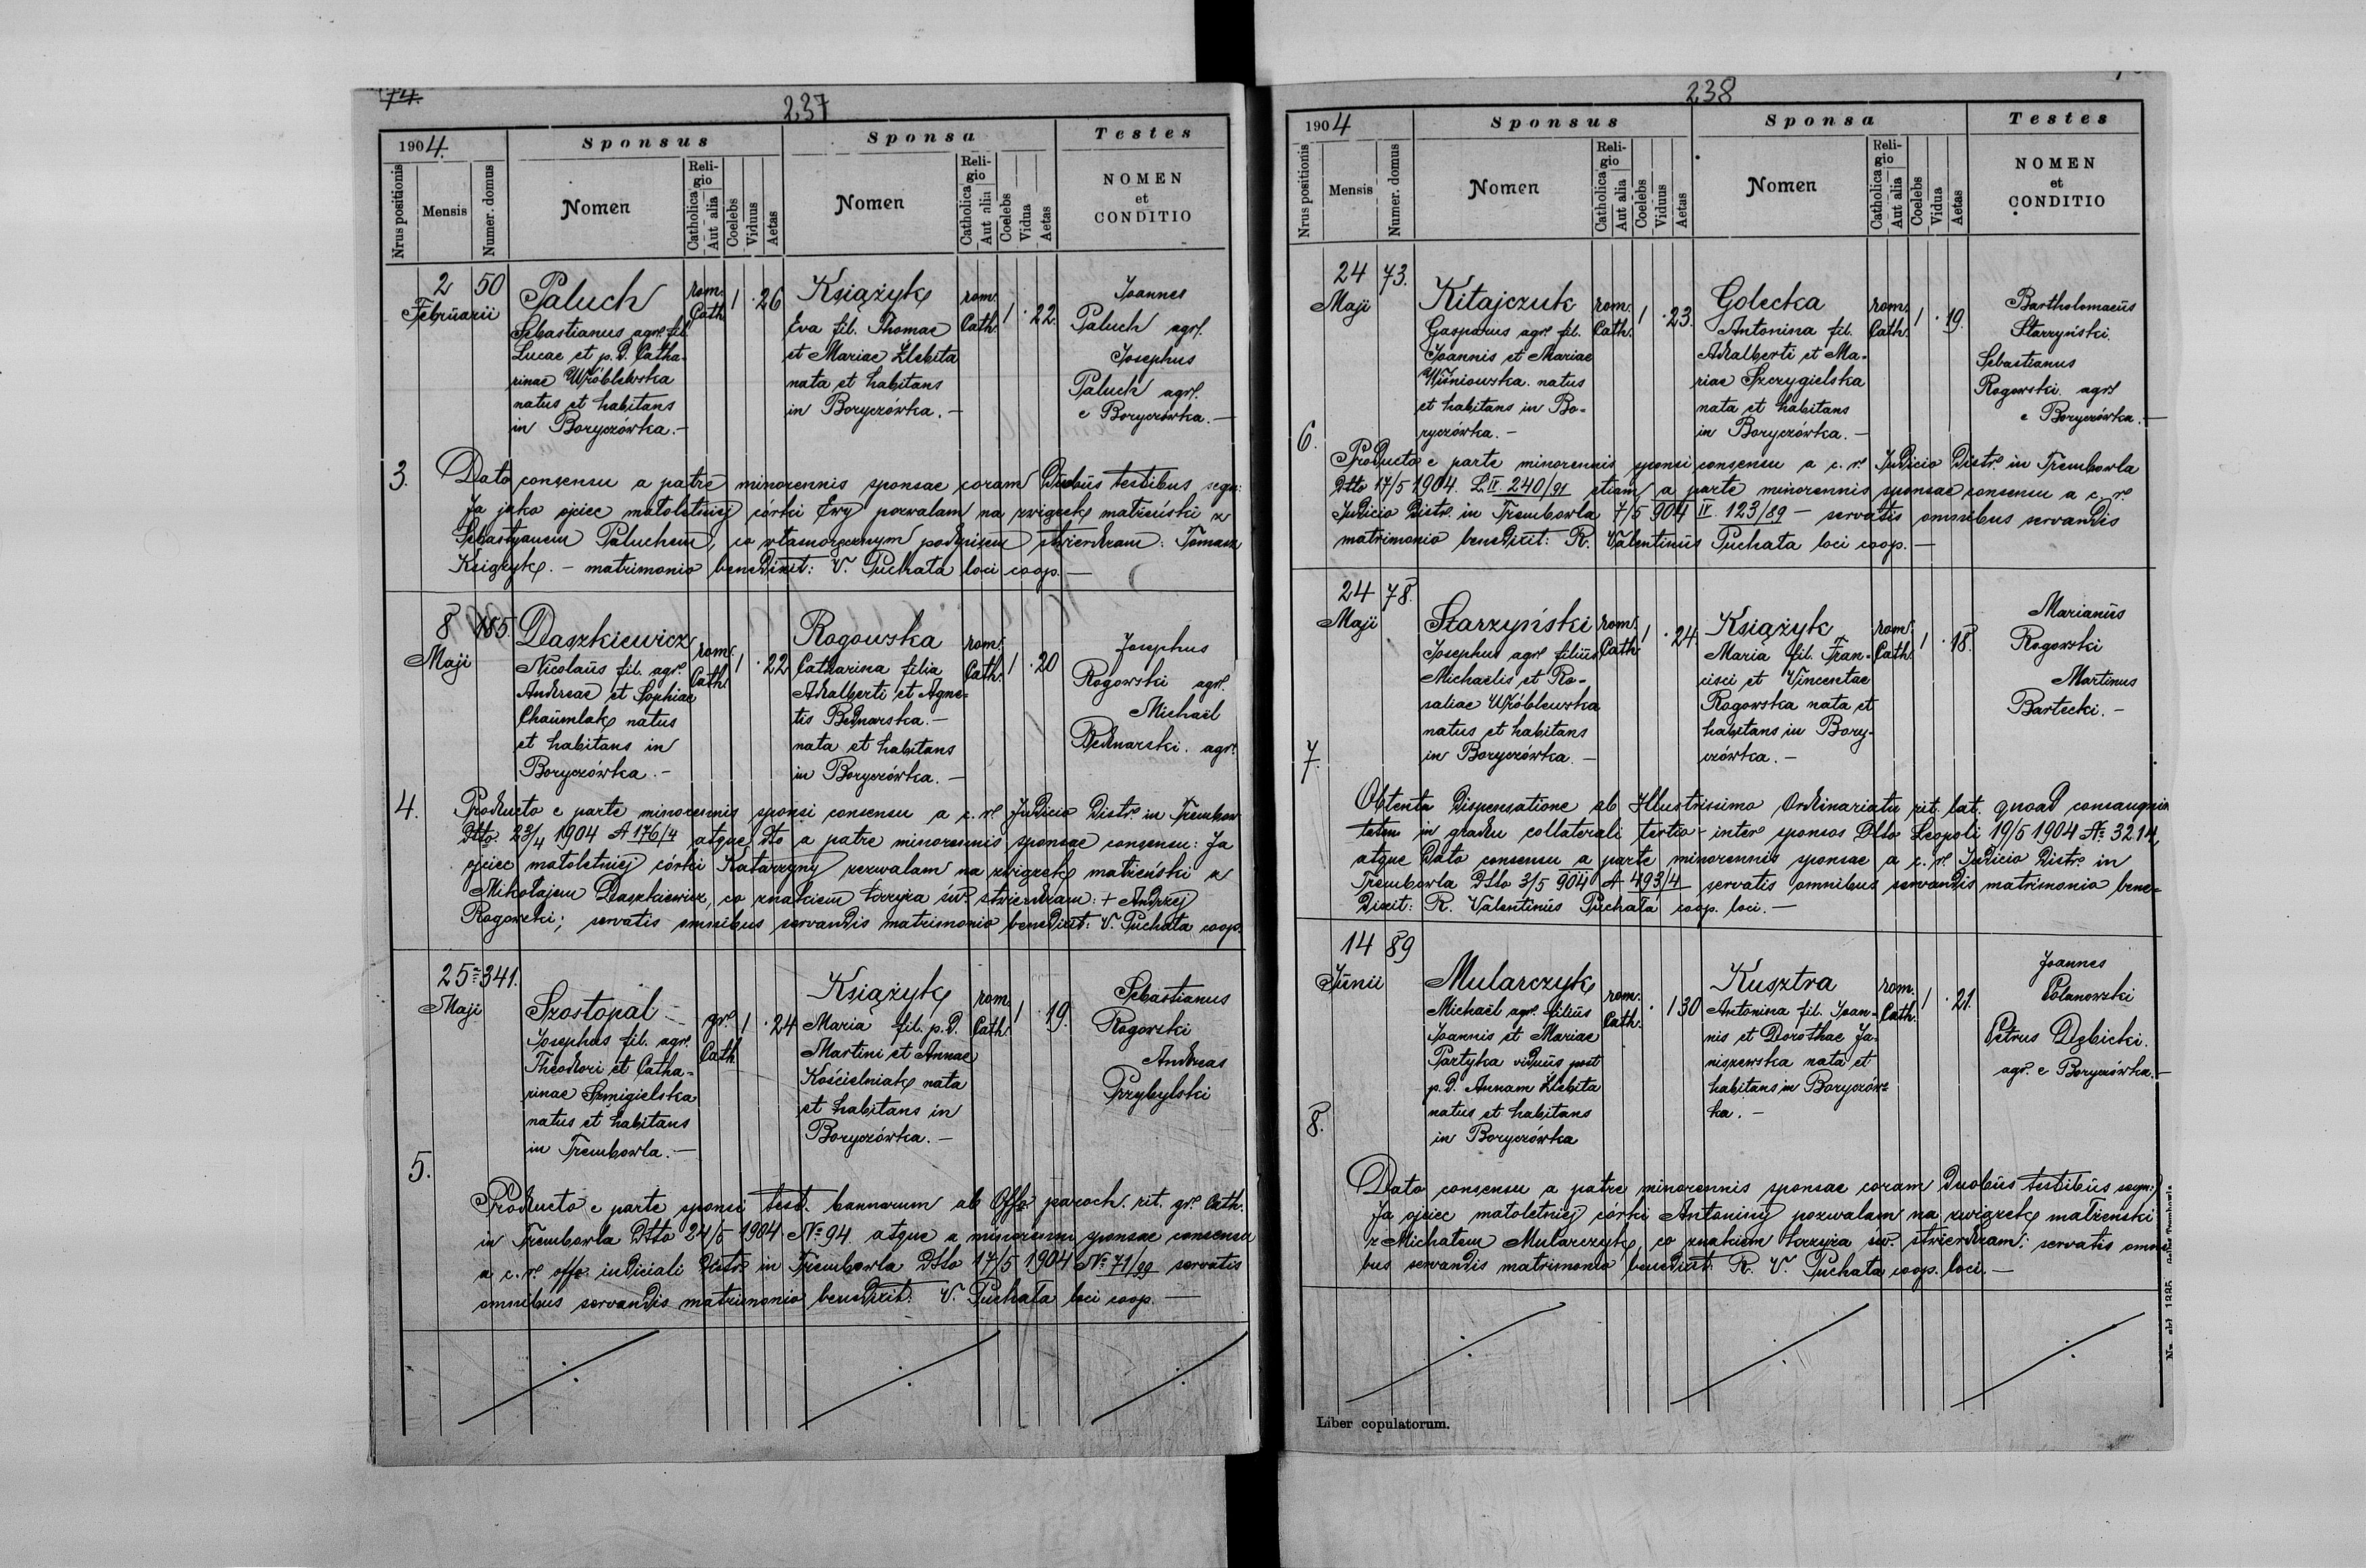 74.
237
1904.
Sponsus
Sponsa
Testes
Nrus positionis
Mensis
Numer. domus
Nomen
Religio
Catholica
Aut alia
Coelebs
Viduus
Aetas
Nomen
Religio
Catholica
Aut alia
Coelebs
Vidua
Aetas
NOMEN
et
CONDITIO
3.
2
Februarii
50
Paluch
Sebastianus agr. fil.
Lucae et p. d. Catha-
rinae Wróblewska
natus et habitans
in Boryczówka.-
rom.
Cath.
1
26
Książyk
Eva fil. Thomae
et Mariae Żlebita
nata et habitans
in Boryczówka.-
rom.
Cath.
1
22.
Joannes
Paluch agr.
Josephus
Paluch agr.
e Boryczówka.-
Dato consensu a patre minorennis sponsae coram duobus testibus sequ:
Ja jako ojciec małoletniej córki Ewy pozwalam na związek małżeński z
Sebastyanem Paluchem, co własnoręcznym podpisem stwierdzam: Tomasz
Książyk. - matrimonio benedixit: V. Puchała loci coop.-
4.
8
Maji
185.
Daszkiewicz
Nicolaus fil. agr.
Andreae et Sophiae
Chaumlak natus
et habitans in
Boryczówka.-
rom.
Cath.
1
22
Rogowska
Catharina filia
Adalberti et Agne-
tis Bednarska.-
nata et habitans
in Boryczówka.-
rom.
Cath.
1
20
Josephus
Rogowski agr.
Michaël
Bednarski. agr.
Producto e parte minorennis sponsi consensu a c. r. Judicio Distr. in Trembow
dtto. 23/4 1904 A 176/4 atque dto a patre minorennis sponsae consensu: Ja
ojciec małoletniej córki Katarzyny zezwalam na związek małżeński z
Mikołajem Daszkiewicz, co znakiem krzyża św. stwierdzam: + Andrzej
Rogowski; servatis omnibus servandis matrimonio benedixit: V. Puchała coop.
5.
25
Maji
341.
Szostopal
Josephus fil. agr.
Theodori et Catha-
rinae Szmigielska
natus et habitans
in Trembowla.-
gr.
Cath.
1
24
Książyk
Maria fil. p. d.
Martini et Annae
Kościelniak nata
et habitans in
Boryczówka.-
rom.
Cath.
1
19.
Sebastianus
Rogowski
Andreas
Przybylski
Producto e parte sponsi test. bannorum ab Offo paroch. rit. gr. Cath.
in Trembowla dtto 24/5 1904 No 94. atque a minorenni sponsae consensu
a c. r. offo iudiciali Distr. in Trembowla dtto 17/5 1904 No 71/99 servatis
omnibus servandis matrimonio benedixit. V. Puchała loci coop.-
238
1904
Sponsus
Sponsa
Testes
Nrus positionis
Mensis
Numer. domus
Nomen
Religio
Catholica
Aut alia
Coelebs
Viduus
Aetas
Nomen
Religio
Catholica
Aut alia
Coelebs
Vidua
Aetas
NOMEN
et
CONDITIO
6.
24
Maji
73.
Kitajczuk
Gasparus agr. fil.
Joannis et Mariae
Wiśniowska. natus
et habitans in Bo-
ryczówka.-
rom.
Cath.
1
23.
Golecka
Antonina fil.
Adalberti et Ma-
riae Szczygielska
nata et habitans
in Boryczówka.-
rom.
Cath.
1
19.
Bartholomaeus
Starzyński.
Sebastianus
Rogowski agr.
e Boryczówka.-
Producto e parte minorennis sponsi consensu a c. r. Judicio Distr. in Trembowla
dtto 17/5 1904. L. II 240/91 etiam a parte minorennis sponsae consensu a c. r.
Judicio Distr. in Trembowla 7/5 904 IV 123/89 - servatis omnibus servandis
matrimonio benedixit: R. Valentinus Puchała loci coop.-
7.
24
Maji
78.
Starzyński
Josephus agr. filius
Michaelis et Ro-
saliae Wróblewska
natus et habitans
in Boryczówka.-
rom.
Cath.
1
24.
Książyk
Maria fil. Fran-
cisci et Vincentae
Rogowska nata et
habitans in Bory-
czówka.-
rom.
Cath.
1
18.
Marianus
Rogowski
Martinus
Bartecki.-
Obtenta dispensatione ab Illustrissimo Ordinariatu rit. lat. quoad consangui
tatem in gradu collaterali tertio - inter sponsos dtto Leopoli 19/5 1904 No 3214,
atque dato consensu a parte minorennis sponsae a c. r. Judicio Distr. in
Trembowla dtto 3/5 904 A 493/4 servatis omnibus servandis matrimonio bene-
dixit: R. Valentinus Puchała coop. loci.-
8.
14
Junii
89
Mularczyk
Michaël agr. filius
Joannis et Mariae
Partyka viduus post
p. d. Annam Żlebita
natus et habitans
in Boryczówka
rom.
Cath.
1
30
Kusztra
Antonina fil. Joan-
nis et Dorothae Ja-
niszewska nata et
habitans in Boryczów-
ka.-
rom.
Cath.
1
21.
Joannes
Polanowski
Petrus Dębicki.
agr. e Boryczówka.-
Dato consensu a patre minorennis sponsae coram duobus testibus sequ:
Ja ojciec małoletniej córki Antoniny pozwalam na związek małżeński
z Michałem Mularczyk, co znakiem krzyża św. stwierdzam; servatis omni
bus servandis matrimonio benedixit. R. V. Puchała coop. loci.-
Liber copulatorum.